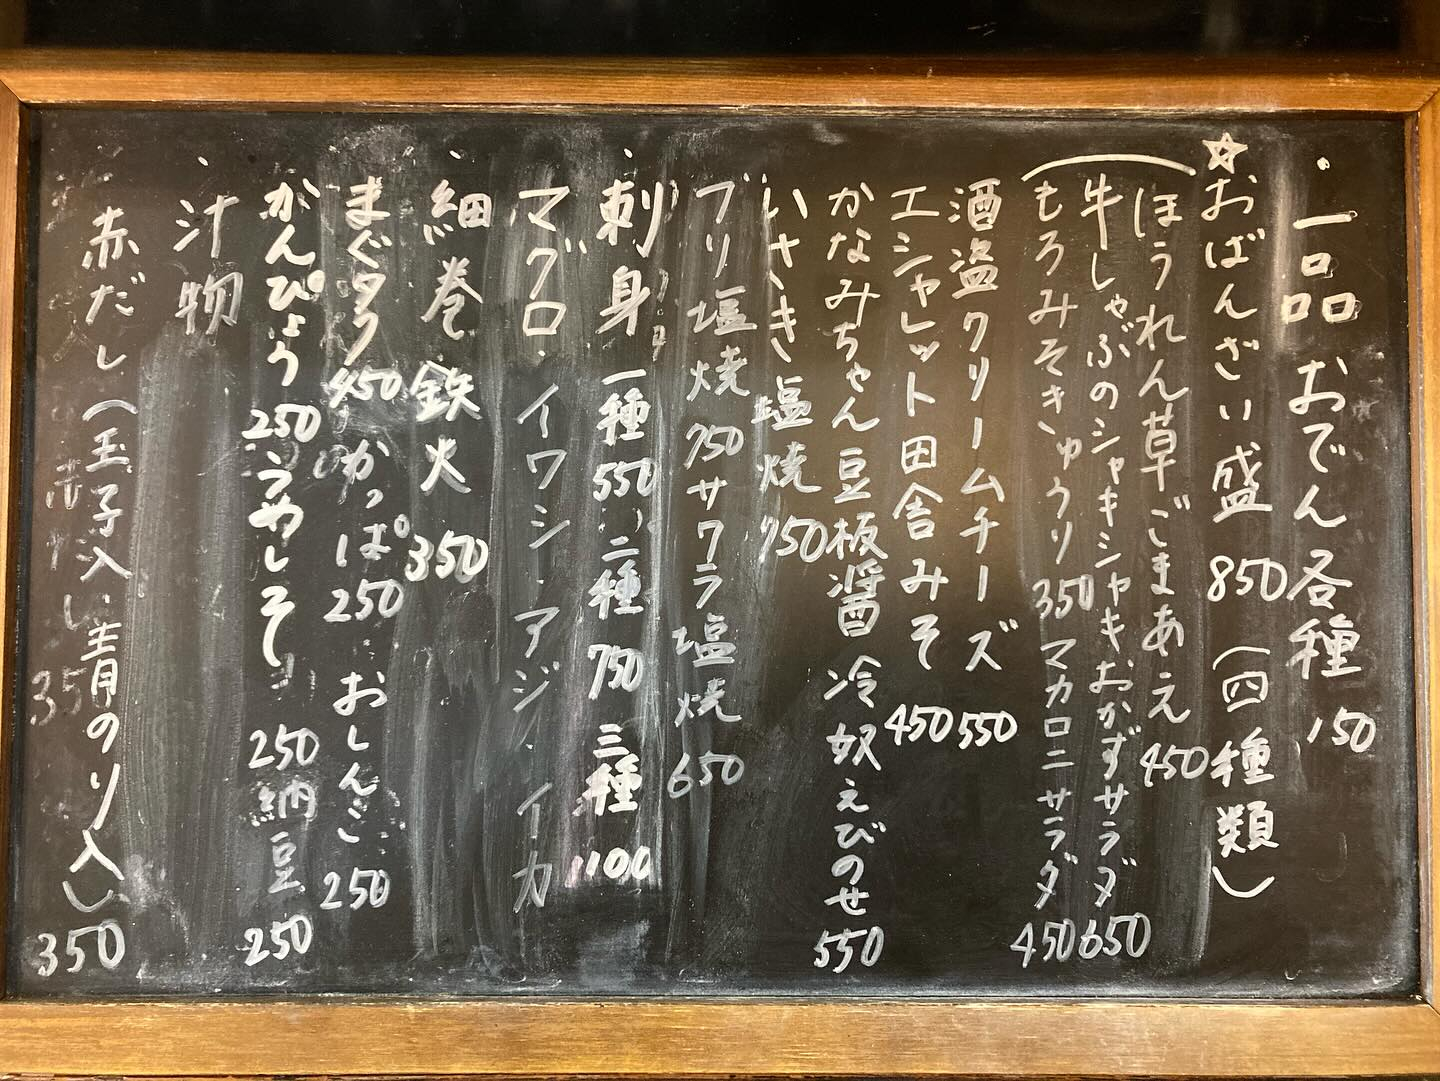 ・一品 おでん各種 150
☆おばんざい盛 850 (四種類)
ほうれん草ごまあえ 450
牛しゃぶのシャキシャキおかずサラダ 650
もろみそきゅうり 350 マカロニサラダ 450
酒盗クリームチーズ 550
エシャレット田舎みそ 450
かなみちゃん豆板醤 冷奴えびのせ 550
いさき塩焼 750
ブリ塩焼 750 サワラ塩焼 650
・刺身 一種 550 二種 750 三種 1100
マグロ・イワシ・アジ・イカ
・細巻 鉄火 350
まぐタク 450 かっぱ 250 おしんこ 250
かんぴょう 250 うめしそ 250 納豆 250
・汁物
赤だし(玉子入)(青のり入) 350